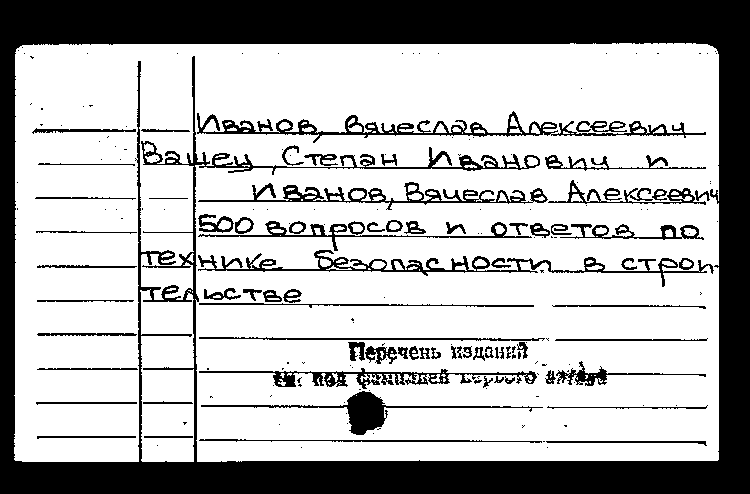 Иванов, Вячеслав Алексеевич
Вашец, Степан Иванович и
Иванов, Вячеслав Алексеевич
500 вопросов и ответов по
технике безопасности в строи-
тельстве
Перечень изданий
см. под фамилией первого автора